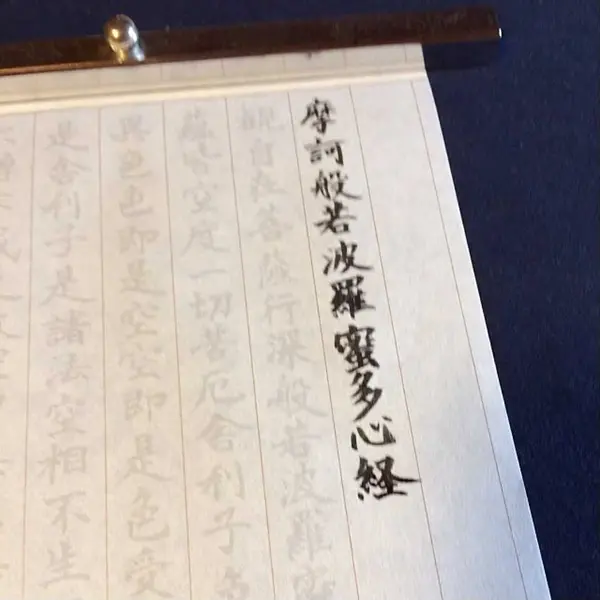 摩訶般若波羅蜜多心経
観自在菩薩行深般若波羅蜜
蘊皆空度一切苦厄舎利子
異色色即是空空即是色受
是舎利子是諸法空相不生